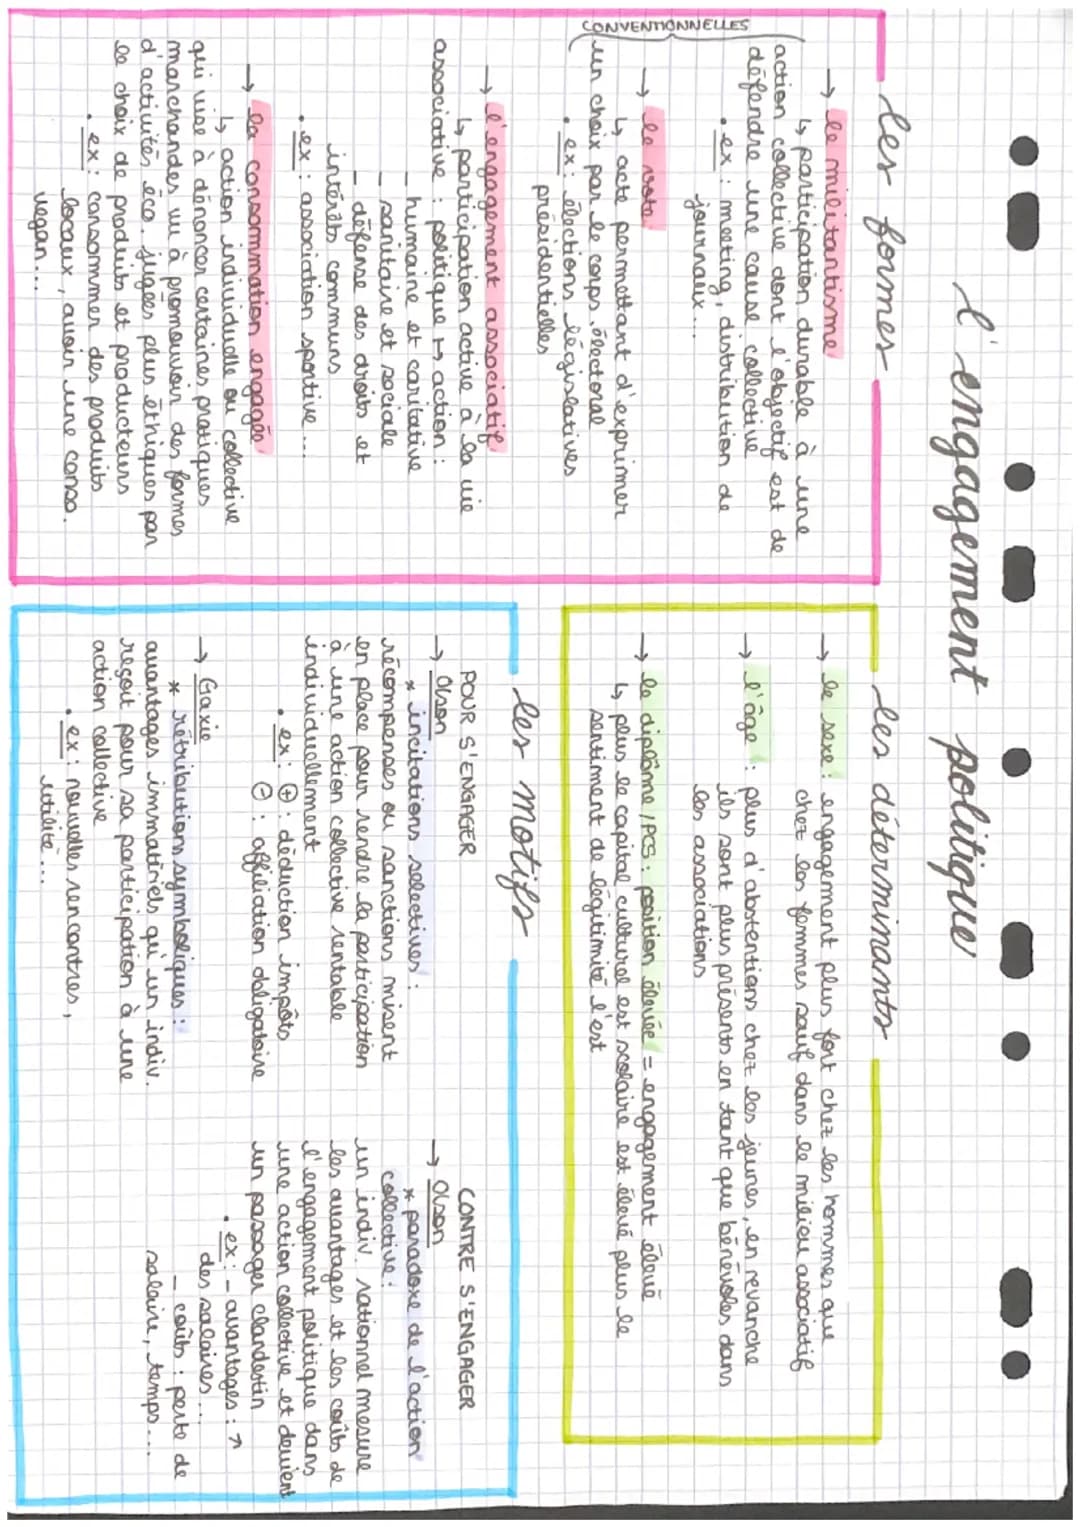 l'engagement politique
les formes
CONVENTIONNELLES
→ le militantisme
↳ participation durable à une
action collective dont l'objectif est de
défendre une cause collective
• ex : meeting, distribution de
journaux...
→ le vote
↳ acte permettant d'exprimer
un choix par le corps électoral
• ex : élections législatives
présidentielles
→ l'engagement associatif
↳ participation active à la vie
associative : politique ↦ action :
– humaine et caritative
– sanitaire et sociale
– défense des droits et
intérêts communs
• ex : association sportive...
→ la consommation engagée
↳ action individuelle ou collective
qui vise à dénoncer certaines pratiques
marchandes ou à promouvoir des formes
d'activités éco. jugées plus éthiques par
le choix de produits et producteurs
• ex : consommer des produits
locaux, avoir une conso.
vegan...
les déterminants
→ le sexe : engagement plus fort chez les hommes que
chez les femmes sauf dans le milieu associatif
→ l'âge : plus d'abstentions chez les jeunes, en revanche
ils sont plus présents en tant que bénévoles dans
les associations
→ le diplôme / PCS : position élevée = engagement élevé
↳ plus le capital culturel est scolaire est élevé plus le
sentiment de légitimité l'est
les motifs
POUR S'ENGAGER
→ Olson
* incitations sélectives :
récompenses ou sanctions misent
en place pour rendre la participation
à une action collective rentable
individuellement
• ex : ⊕ : déduction impôts
⊖ : affiliation obligatoire
→ Gaxie
* rétributions symboliques :
avantages immatériels qu'un indiv.
reçoit pour sa participation à une
action collective
• ex : nouvelles rencontres,
utilité...
CONTRE S'ENGAGER
→ Olson
* paradoxe de l'action
collective :
un indiv. rationnel mesure
les avantages et les coûts de
l'engagement politique dans
une action collective et devient
un passager clandestin
• ex : – avantages : ↗
des salaires...
– coûts : perte de
salaire, temps...